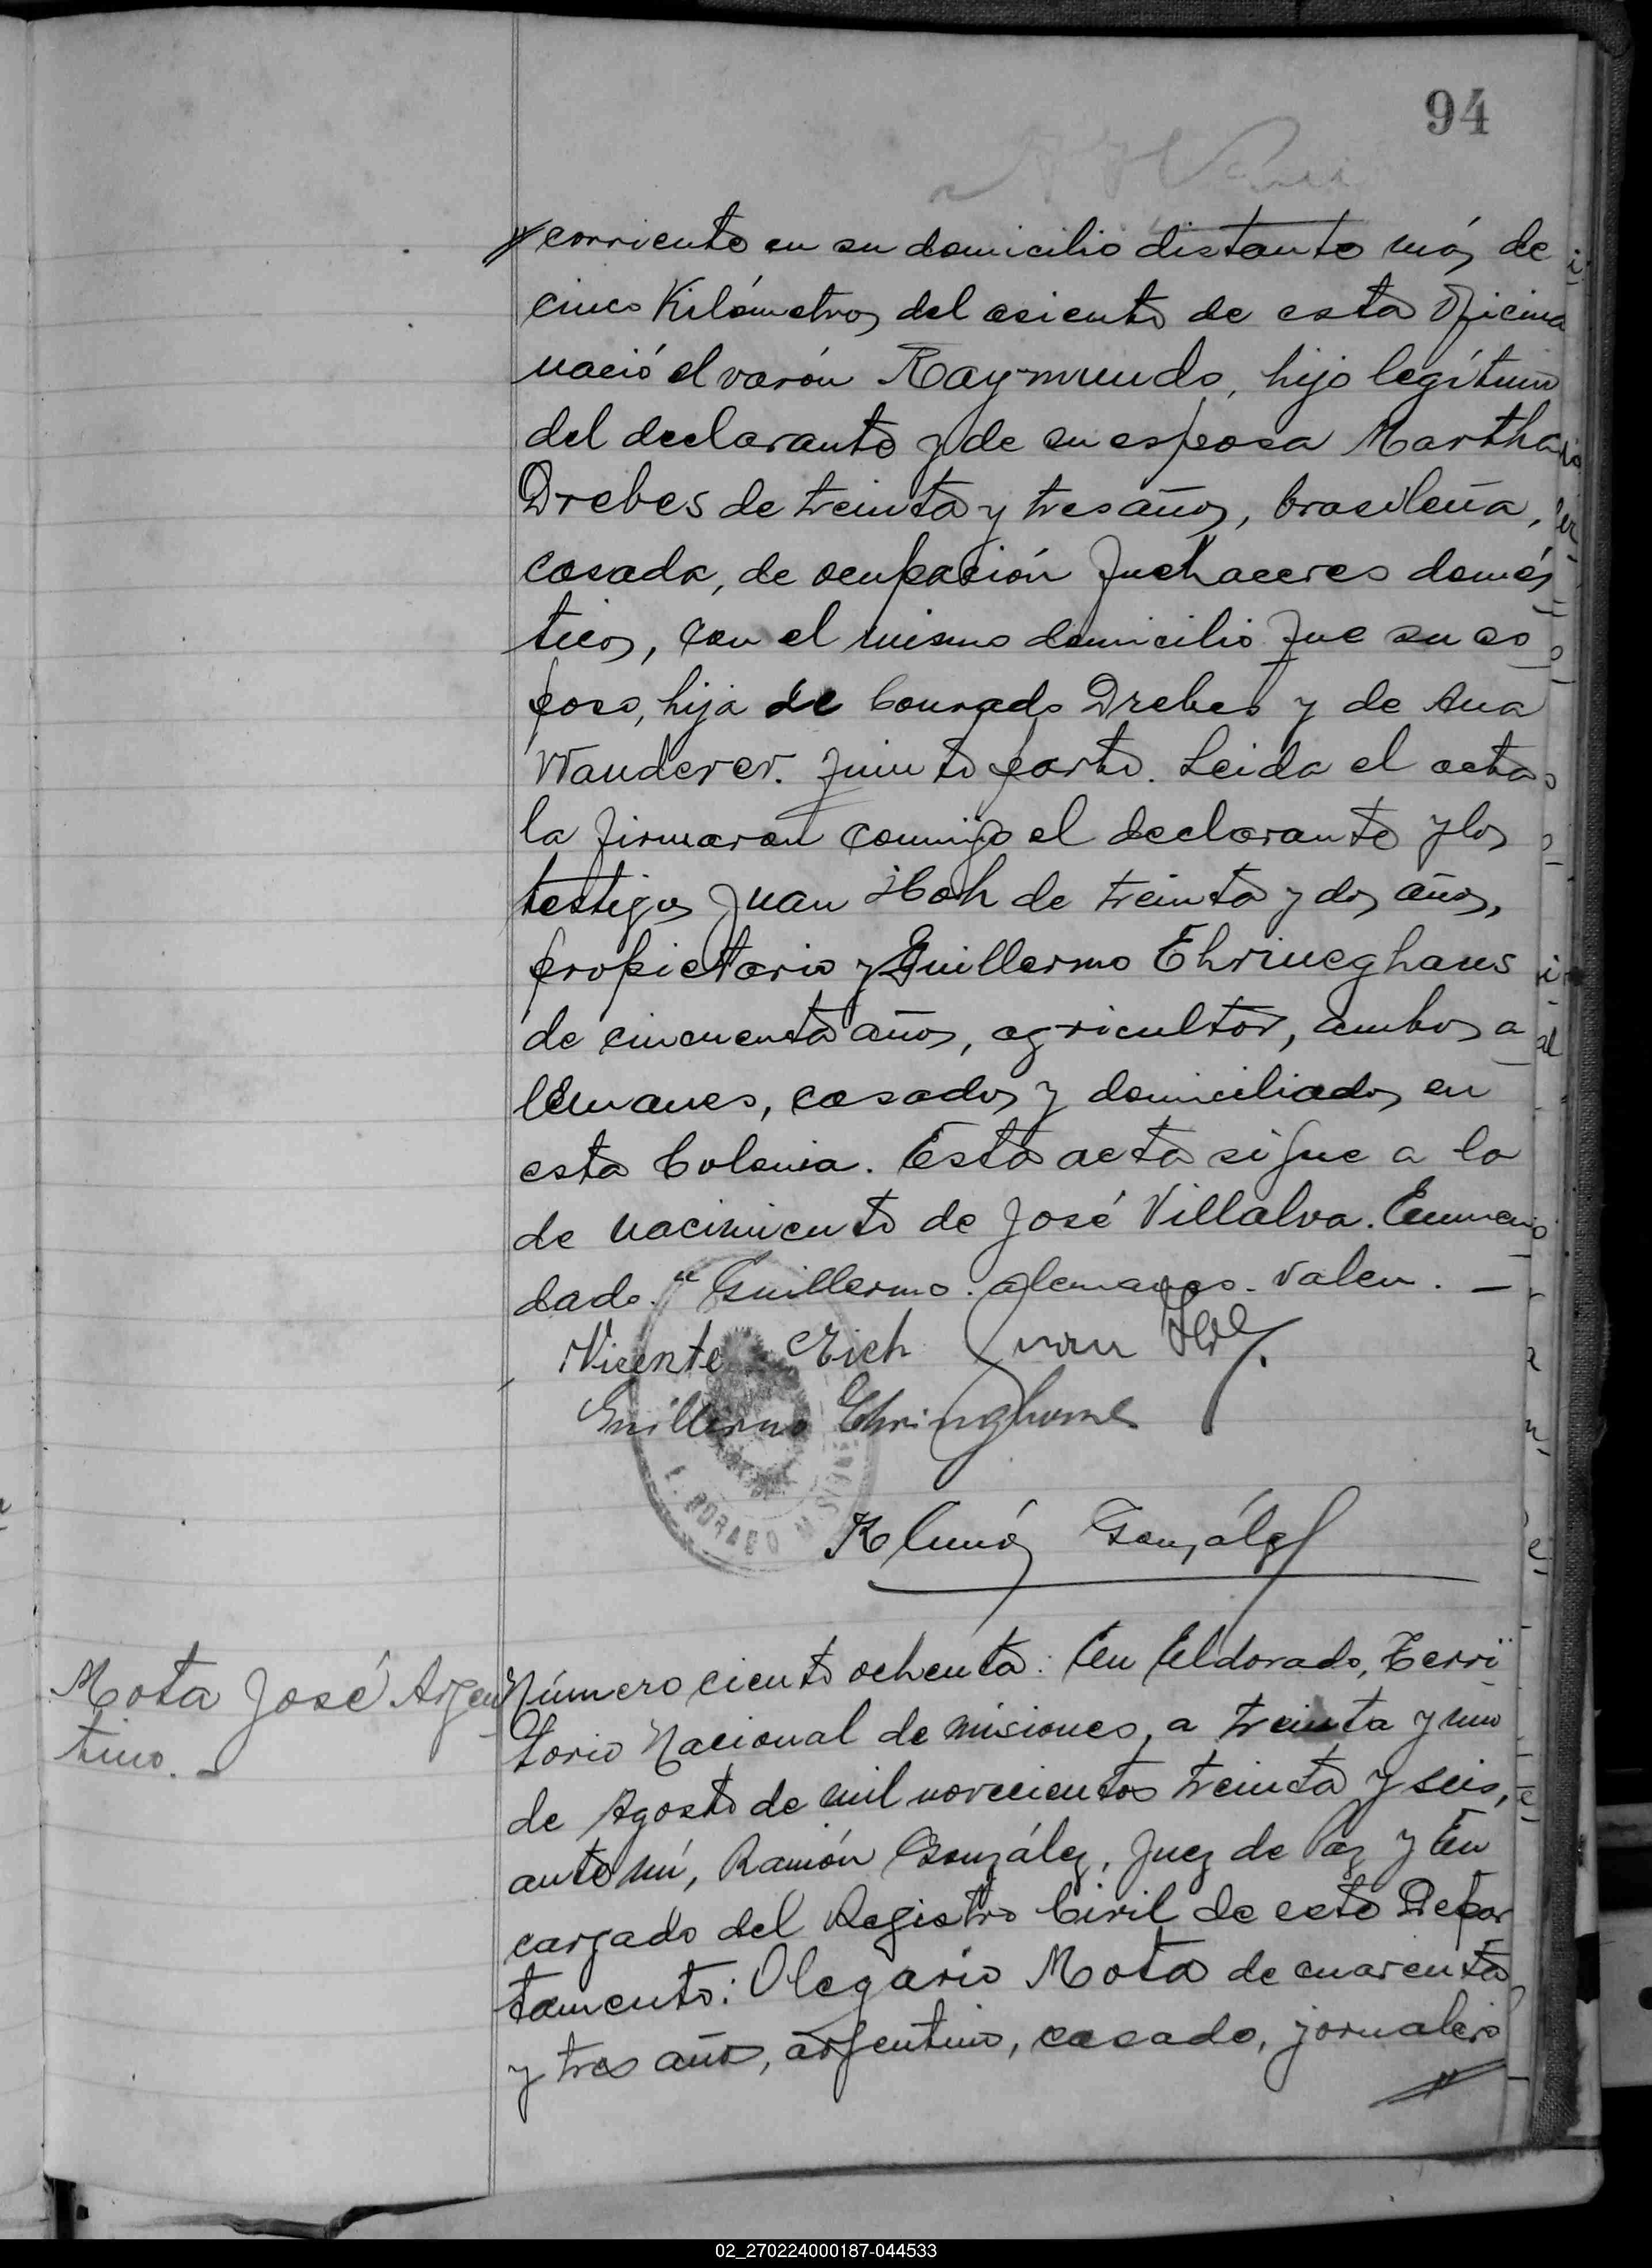 94
corriente en su domicilio distante más de
cinco Kilómetros del asiento de esta Oficina
nació el varón Raymundo, hijo legítimo
del declarante y de su esposa Martha
Drebes de treinta y tres años, brasileña,
casada, de ocupación quehaceres domés
ticos, con el mismo domicilio que su es
poso, hija de Conrado Drebes y de Ana
Wanderer. Quinto parto. Leida el acta
la firmaron conmigo el declarante y los
testigos Juan Hoh de treinta y dos años,
propietario y Guillermo Ehrineghaus
de cincuenta años, agricultor, ambos a
lemanes, casados y domiciliados en
esta Colonia. Esta acta sigue a la
de nacimiento de José Villalva. Enmen
dado. "Guillermo. alemanes. Valen. —
Vicente Erich Juan
Guillermo Ehringhaus
Ramón González
Mota José Argen
tino. -
Número ciento ochenta: En Eldorado, Terri
torio Nacional de Misiones, a treinta y uno
de Agosto de mil novecientos treinta y seis,
ante mí, Ramón González, Juez de Paz y En
cargado del Registro Civil de este Depar
tamento: Olegario Mota de cuarenta
y tres años, argentino, casado, jornalero
02_270224000187-044533